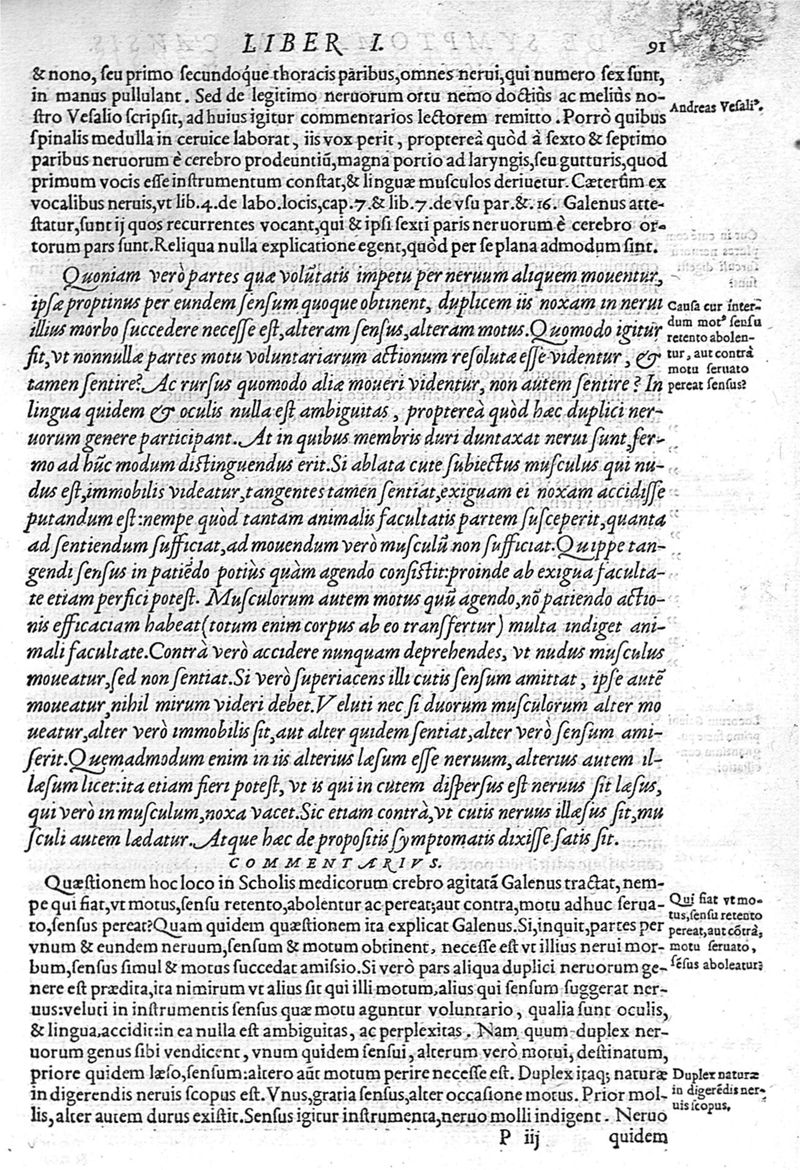 LIBER I. 91
& nono, seu primo secundoq́ue thoracis paribus, omnes nerui, qui numero sex sunt,
in manus pullulant. Sed de legitimo neruorum ortu nemo doctiùs ac meliùs no-
stro Vesalio scripsit, ad huius igitur commentarios lectorem remitto. Porrò quibus
Andreas Vesali⁹.
spinalis medulla in ceruice laborat, iis vox perit, propterea quòd à sexto & septimo
paribus neruorum è cerebro prodeuntiũ, magna portio ad laryngis, seu gutturis, quod
primum vocis esse instrumentum constat, & linguæ musculos deriuetur. Cæterùm ex
vocalibus neruis, vt lib. 4. de labo. locis, cap. 7. & lib. 7. de vsu par. &. 16. Galenus atte-
statur, sunt ij quos recurrentes vocant, qui & ipsi sexti paris neruorum è cerebro or-
torum pars sunt. Reliqua nulla explicatione egent, quòd per se plana admodum sint.
Quoniam verò partes quæ volũtatis impetu per neruum aliquem mouentur,
ipsæ proptinus per eundem sensum quoque obtinent, duplicem iis noxam in nerui
illius morbo succedere necesse est, alteram sensus, alteram motus. Quomodo igitur
fit, vt nonnullæ partes motu voluntariarum actionum resolutæ esse videntur, &
tamen sentire? Ac rursus quomodo aliæ moueri videntur, non autem sentire? In
Causa cur inter-
dum mot⁹ sensu
retento abolen-
tur, aut contrà
motu seruato
pereat sensus?
lingua quidem & oculis nulla est ambiguitas, propterea quòd hæc duplici ner-
uorum genere participant. At in quibus membris duri duntaxat nerui sunt, ser-
mo ad hũc modum distinguendus erit. Si ablata cute subiectus musculus qui nu-
dus est, immobilis videatur, tangentes tamen sentiat, exiguam ei noxam accidisse
putandum est: nempe quòd tantam animalis facultatis partem susceperit, quanta
ad sentiendum sufficiat, ad mouendum verò musculũ non sufficiat. Quippe tan-
gendi sensus in patiẽdo potiùs quàm agendo consistit: proinde ab exigua faculta-
te etiam perfici potest. Musculorum autem motus quũ agendo, nõ patiendo actio-
nis efficaciam habeat (totum enim corpus ab eo transfertur) multa indiget ani-
mali facultate. Contrà verò accidere nunquam deprehendes, vt nudus musculus
moueatur, sed non sentiat. Si verò superiacens illi cutis sensum amittat, ipse autẽ
moueatur, nihil mirum videri debet. Veluti nec si duorum musculorum alter mo
ueatur, alter verò immobilis sit, aut alter quidem sentiat, alter verò sensum ami-
serit. Quemadmodum enim in iis alterius læsum esse neruum, alterius autem il-
læsum licet: ita etiam fieri potest, vt is qui in cutem dispersus est neruus sit læsus,
qui verò in musculum, noxa vacet. Sic etiam contrà, vt cutis neruus illæsus sit, mu
sculi autem lædatur. Atque hæc de propositis symptomatis dixisse satis sit.
COMMENTARIVS.
Quæstionem hoc loco in Scholis medicorum crebro agitatã Galenus tractat, nem-
pe qui fiat, vt motus, sensu retento, abolentur ac pereat; aut contra, motu adhuc serua-
to, sensus pereat? Quam quidem quæstionem ita explicat Galenus. Si, inquit, partes per
vnum & eundem neruum, sensum & motum obtinent, necesse est vt illius nerui mor-
bum, sensus simul & motus succedat amissio. Si verò pars aliqua duplici neruorum ge-
Qui fiat vt mo-
tus, sensu retento
pereat, aut cõtrà,
motu seruato,
sẽsus aboleatur?
nere est prædita, ita nimirum vt alius sit qui illi motum, alius qui sensum suggerat ner-
uus: veluti in instrumentis sensus quæ motu aguntur voluntario, qualia sunt oculis,
& lingua, accidit: in ea nulla est ambiguitas, ac perplexitas. Nam quum duplex ner-
uorum genus sibi vendicent, vnum quidem sensui, alterum verò motui, destinatum,
priore quidem læso, sensum: altero aũt motum perire necesse est. Duplex itaq; naturæ
in digerendis neruis scopus est. Vnus, gratia sensus, alter occasione motus. Prior mol-
lis, alter autem durus existit. Sensus igitur instrumenta, neruo molli indigent. Neruo
Duplex naturæ
in digerẽdis ner-
uis scopus.
P iij quidem